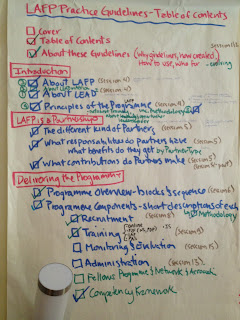 LAFP Practice Guidelines - Table of Contents
Cover
Table of Contents
About these Guidelines (why guidelines, how created,
How to use, who for - evolving
Introduction
About LAFP (Session 4)
About LEAD (Session 4)
Principles of the Programme (Session 9)
LAFP is a Partnership
The different kind of Partners (Session 5)
What responsibilities do Partners have (Session 5)
what benefits do they get by Partner Type
What contributions do Partners make (Session 5)
Delivering the Programme
Programme overview - blocks & sequence (Session 6)
Programme components - short descriptions of each
Methodology
Recruitment (Session 8)
Training (Session 9)
Monitoring & Evaluation (Session 15)
Administration (Session 13)
Fellows Programme & Network &
Competency Framework